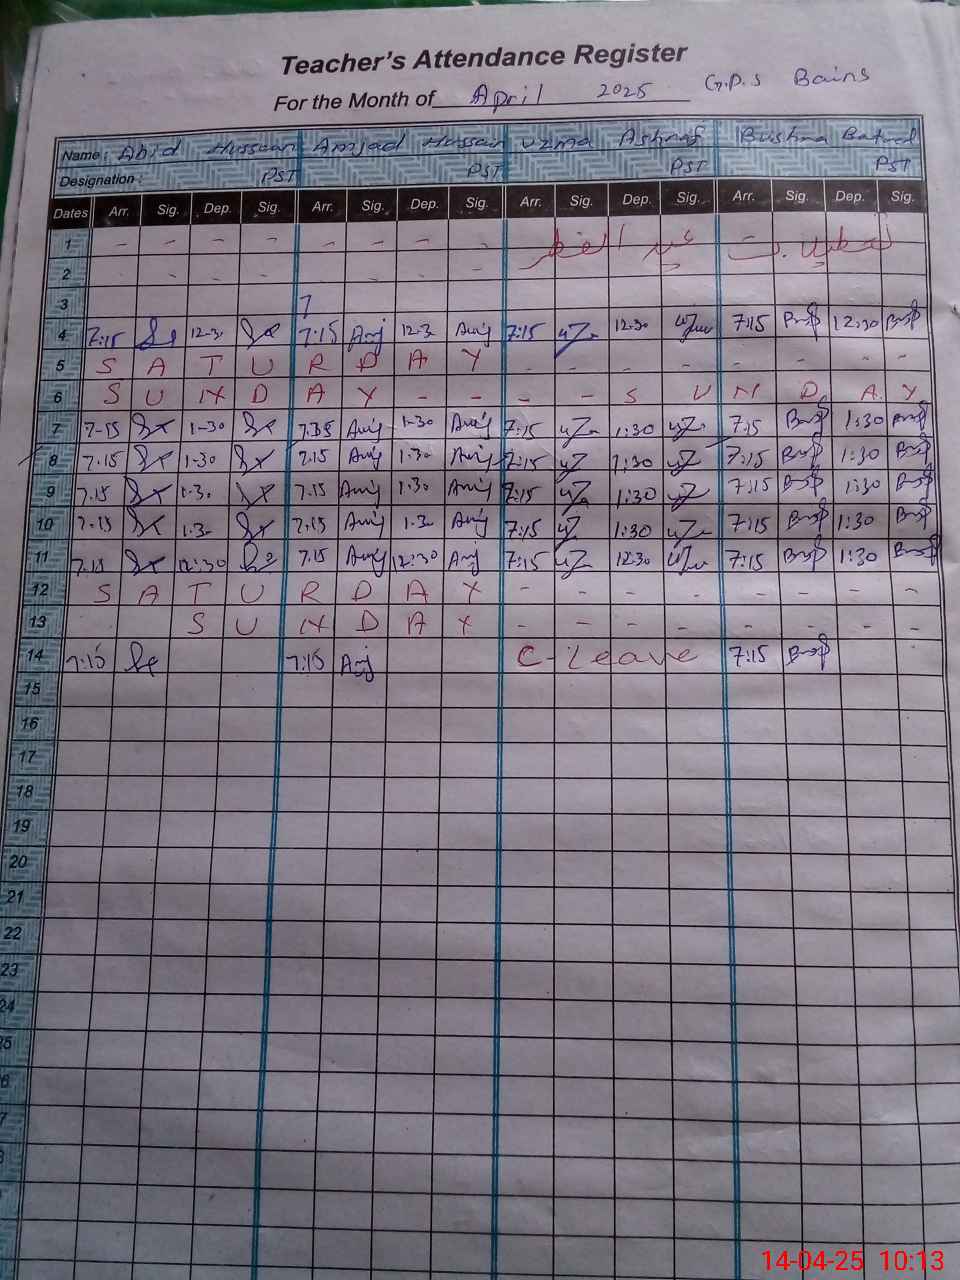 Teacher's Attendance Register
For the Month of April 2025 G.P.S Bains
Name: Abid Hussain Amjad Hussain Uzma Ashraf Bushra Batool
Designation: PST PST PST PST
Dates Arr. Sig. Dep. Sig. Arr. Sig. Dep. Sig. Arr. Sig. Dep. Sig. Arr. Sig. Dep. Sig.
1 - - - - - - - - عید الفطر تعطیلات
2 - - - -
3 7
4 7:15 12-3 7:15 Amj 12-3 Amj 7:15 12:30 7:15 12:30
5 S A T U R D A Y - - - - - - - -
6 S U N D A Y - - - - S U N D A Y
7 7-15 1-30 7.15 Amj 1-30 Amj 7:15 1:30 7:15 1:30
8 7.15 1-30 7.15 Amj 1.30 Amj 7:15 1:30 7:15 1:30
9 7.15 1.30 7.15 Amj 1.30 Amj 7:15 1:30 7:15 1:30
10 7.15 1.3 7.15 Amj 1.3 Amj 7:15 1:30 7:15 1:30
11 7.15 12:30 7.15 Amj 12:30 Amj 7:15 12:30 7:15 1:30
12 S A T U R D A Y - - - - - - - -
13 S U N D A Y - - - - - - - -
14 7:15 7:15 Amj C-Leave 7:15
15
16
17
18
19
20
21
22
23
24
25
6
7
14-04-25 10:13